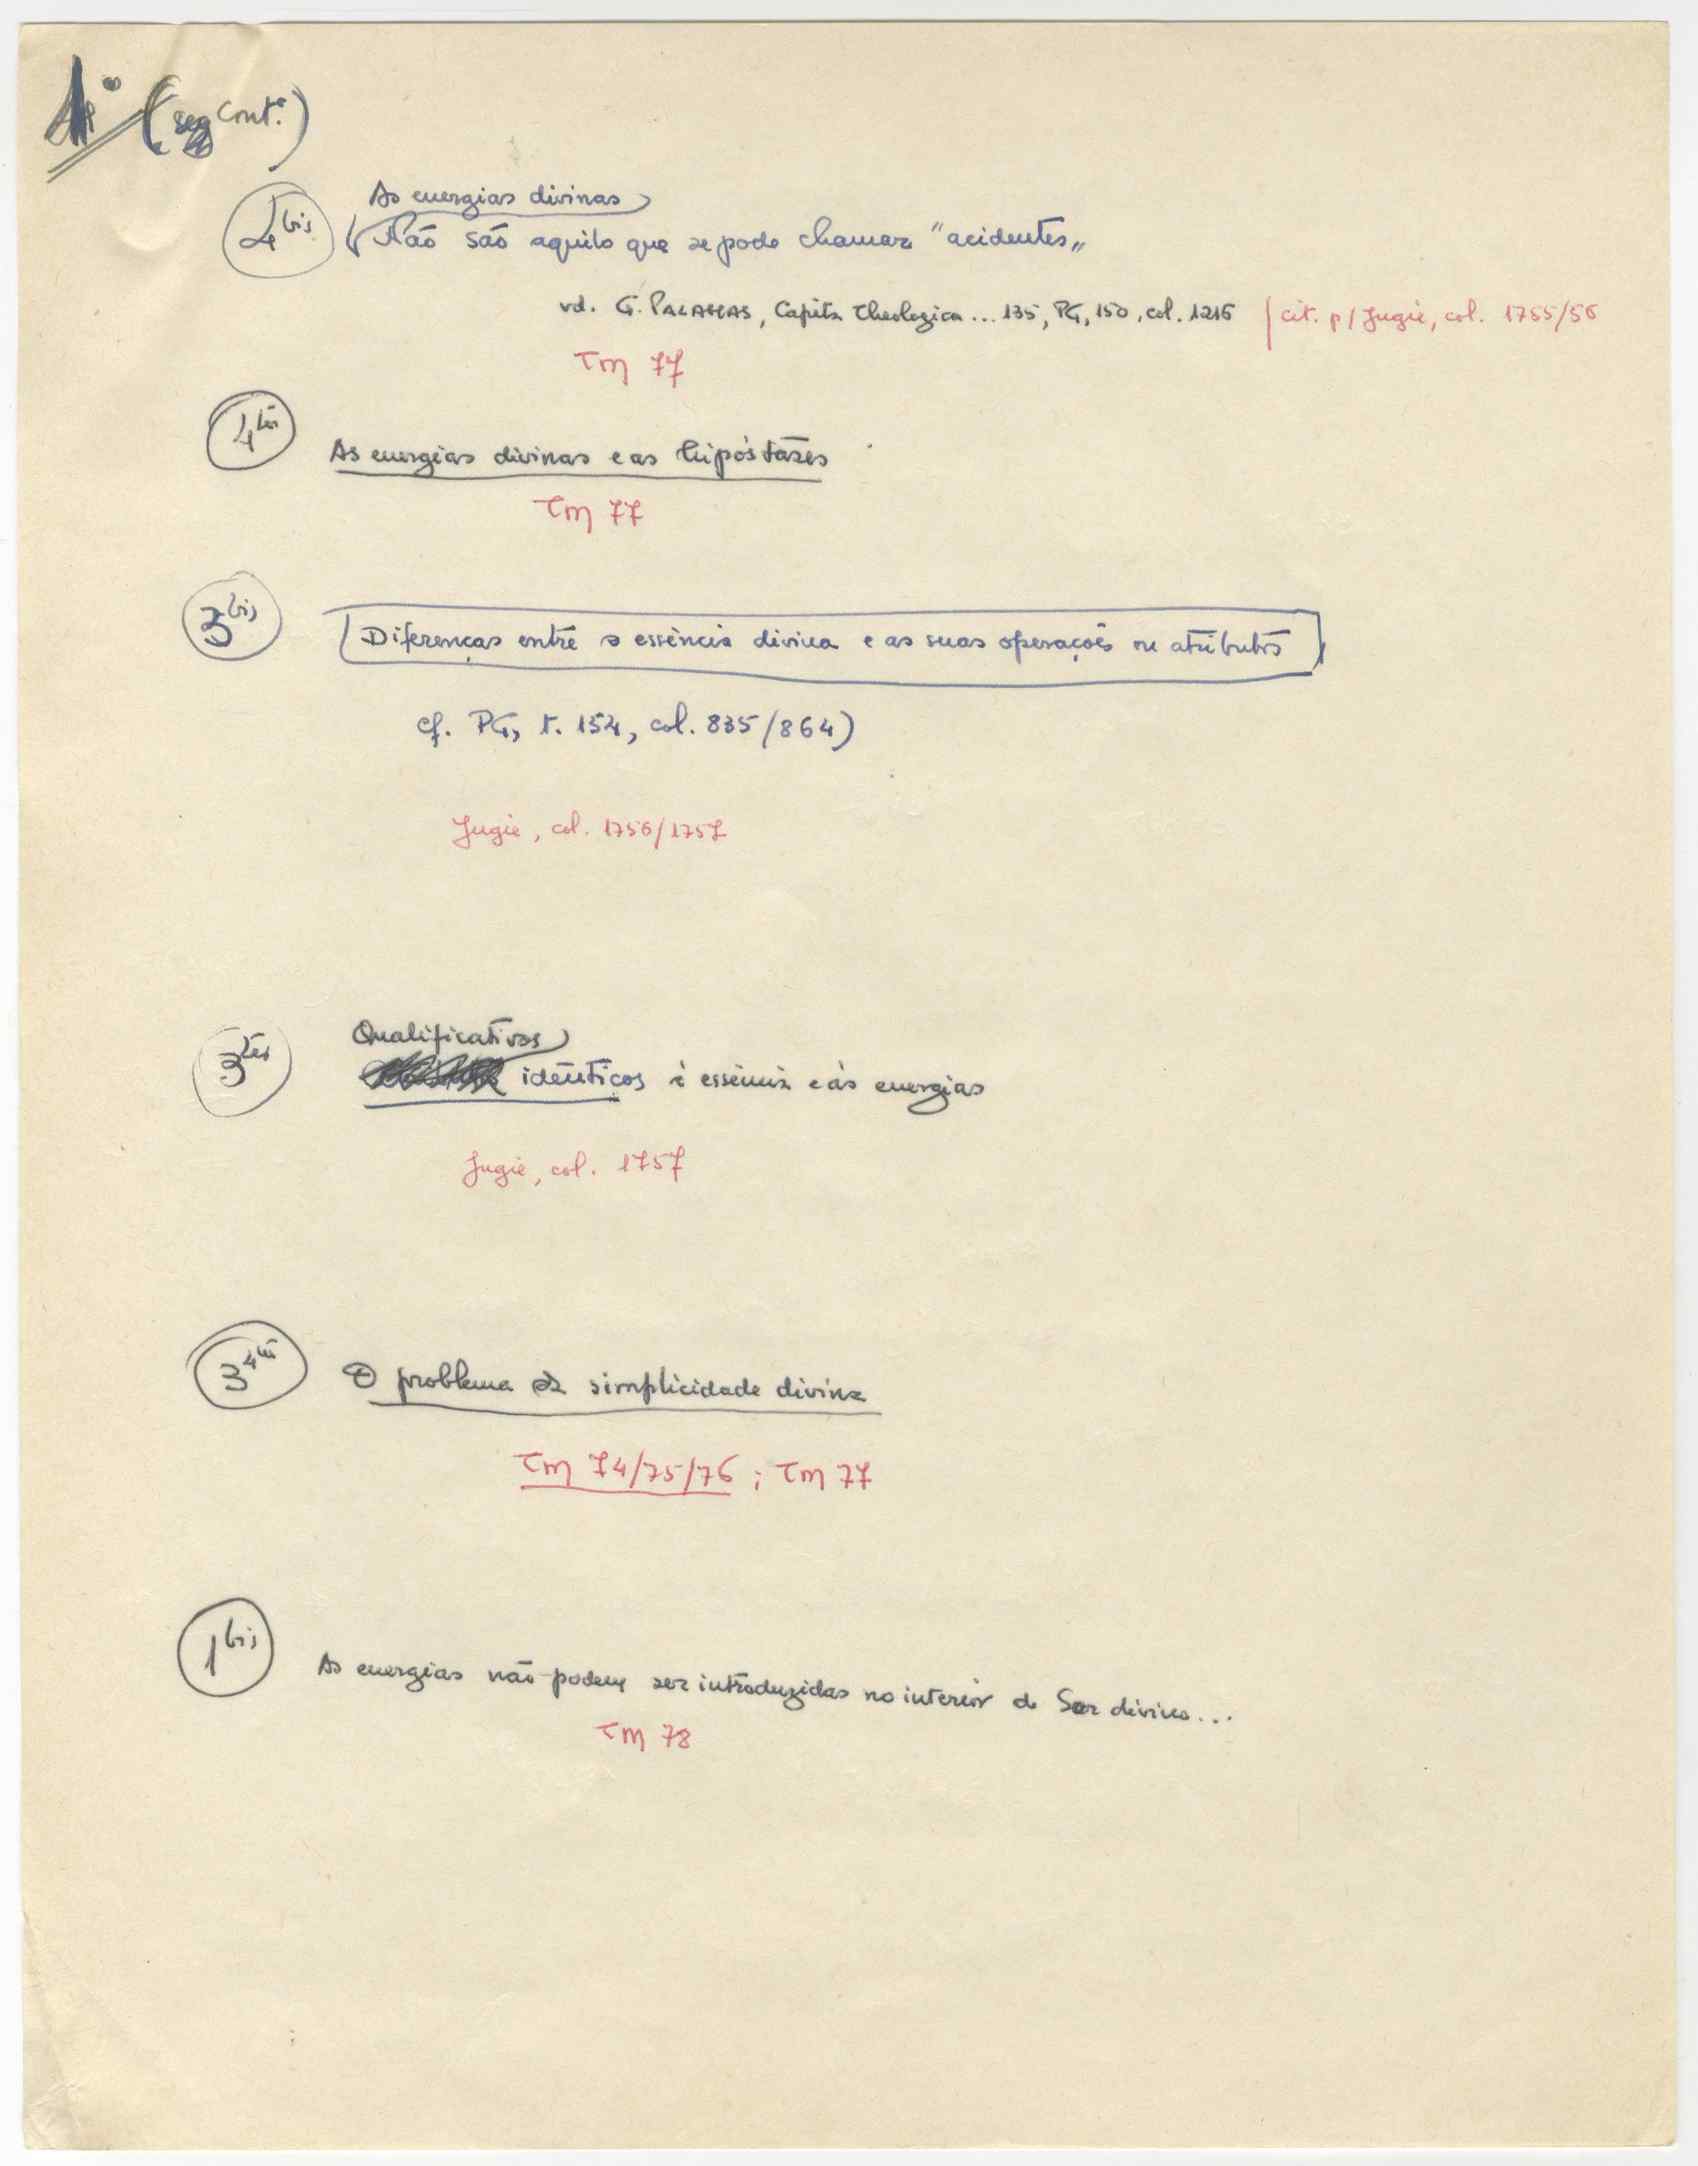 (seg contª.)
4 bis
As energias divinas
Não são aquilo que se pode chamar "acidentes"
vd. G. PALAMAS, Capita Theologica... 135, PG, 150, col. 1216 / cit. p/ Jugie, col. 1755/56
Tm 77
4 ter
As energias divinas e as hipóstases
Tm 77
3 bis
Diferenças entre a essência divina e as suas operações ou atributos
cf. PG, t. 154, col. 835/864)
Jugie, col. 1756/1757
3 ter
Qualificativos
idênticos à essência e às energias
Jugie, col. 1757
3 4ter
O problema da simplicidade divina
Tm 74/75/76 ; Tm 77
1 bis
As energias não podem ser introduzidas no interior do Ser divino...
Tm 78